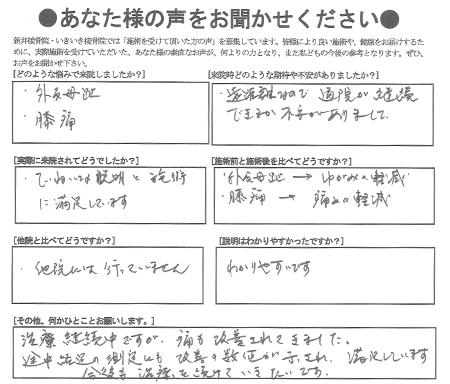 ●あなた様の声をお聞かせください●
新井接骨院・いきいき接骨院では「施術を受けて頂いた方の声」を募集しています。皆様により良い施術や、健康をお届けするた
めに、実際施術を受けていただいた、あなた様の素直なお声が、何よりの力となり、また私どもの今後の参考となります。ぜひ、
お声をお聞かせ下さい。
[どのような悩みで来院しましたか?]
・外反母趾
・膝痛
[来院時どのような期待や不安がありましたか?]
・遠距離なので 通院が継続
できるか不安がありました
[実際に来院されてどうでしたか?]
・ていねいな説明と施術
に満足しています
[施術前と施術後を比べてどうですか?]
・外反母趾 → ゆがみの軽減
・膝痛 → 痛みの軽減
[他院と比べてどうですか?]
・他院には行っていません
[説明はわかりやすかったですか?]
わかりやすいです
[その他、何かひとことお願いします。]
治療継続中ですが、痛も改善されてきました。
途中経過の測定にも改善の数値が示され、満足しています
今後も治療を続けていきたいです。